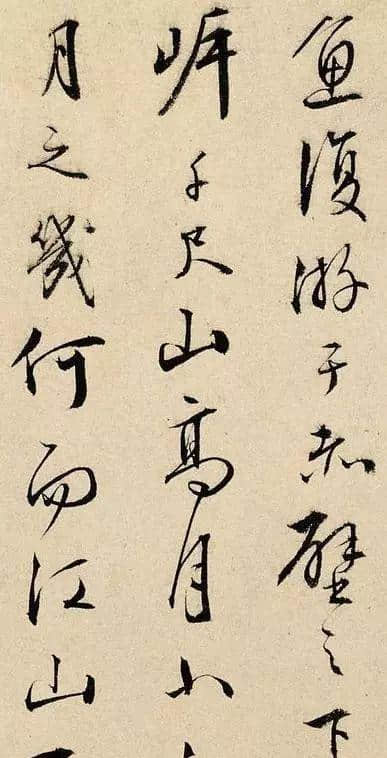 魚復游于赤壁之下
岸千尺山髙月小
月之幾何而江山